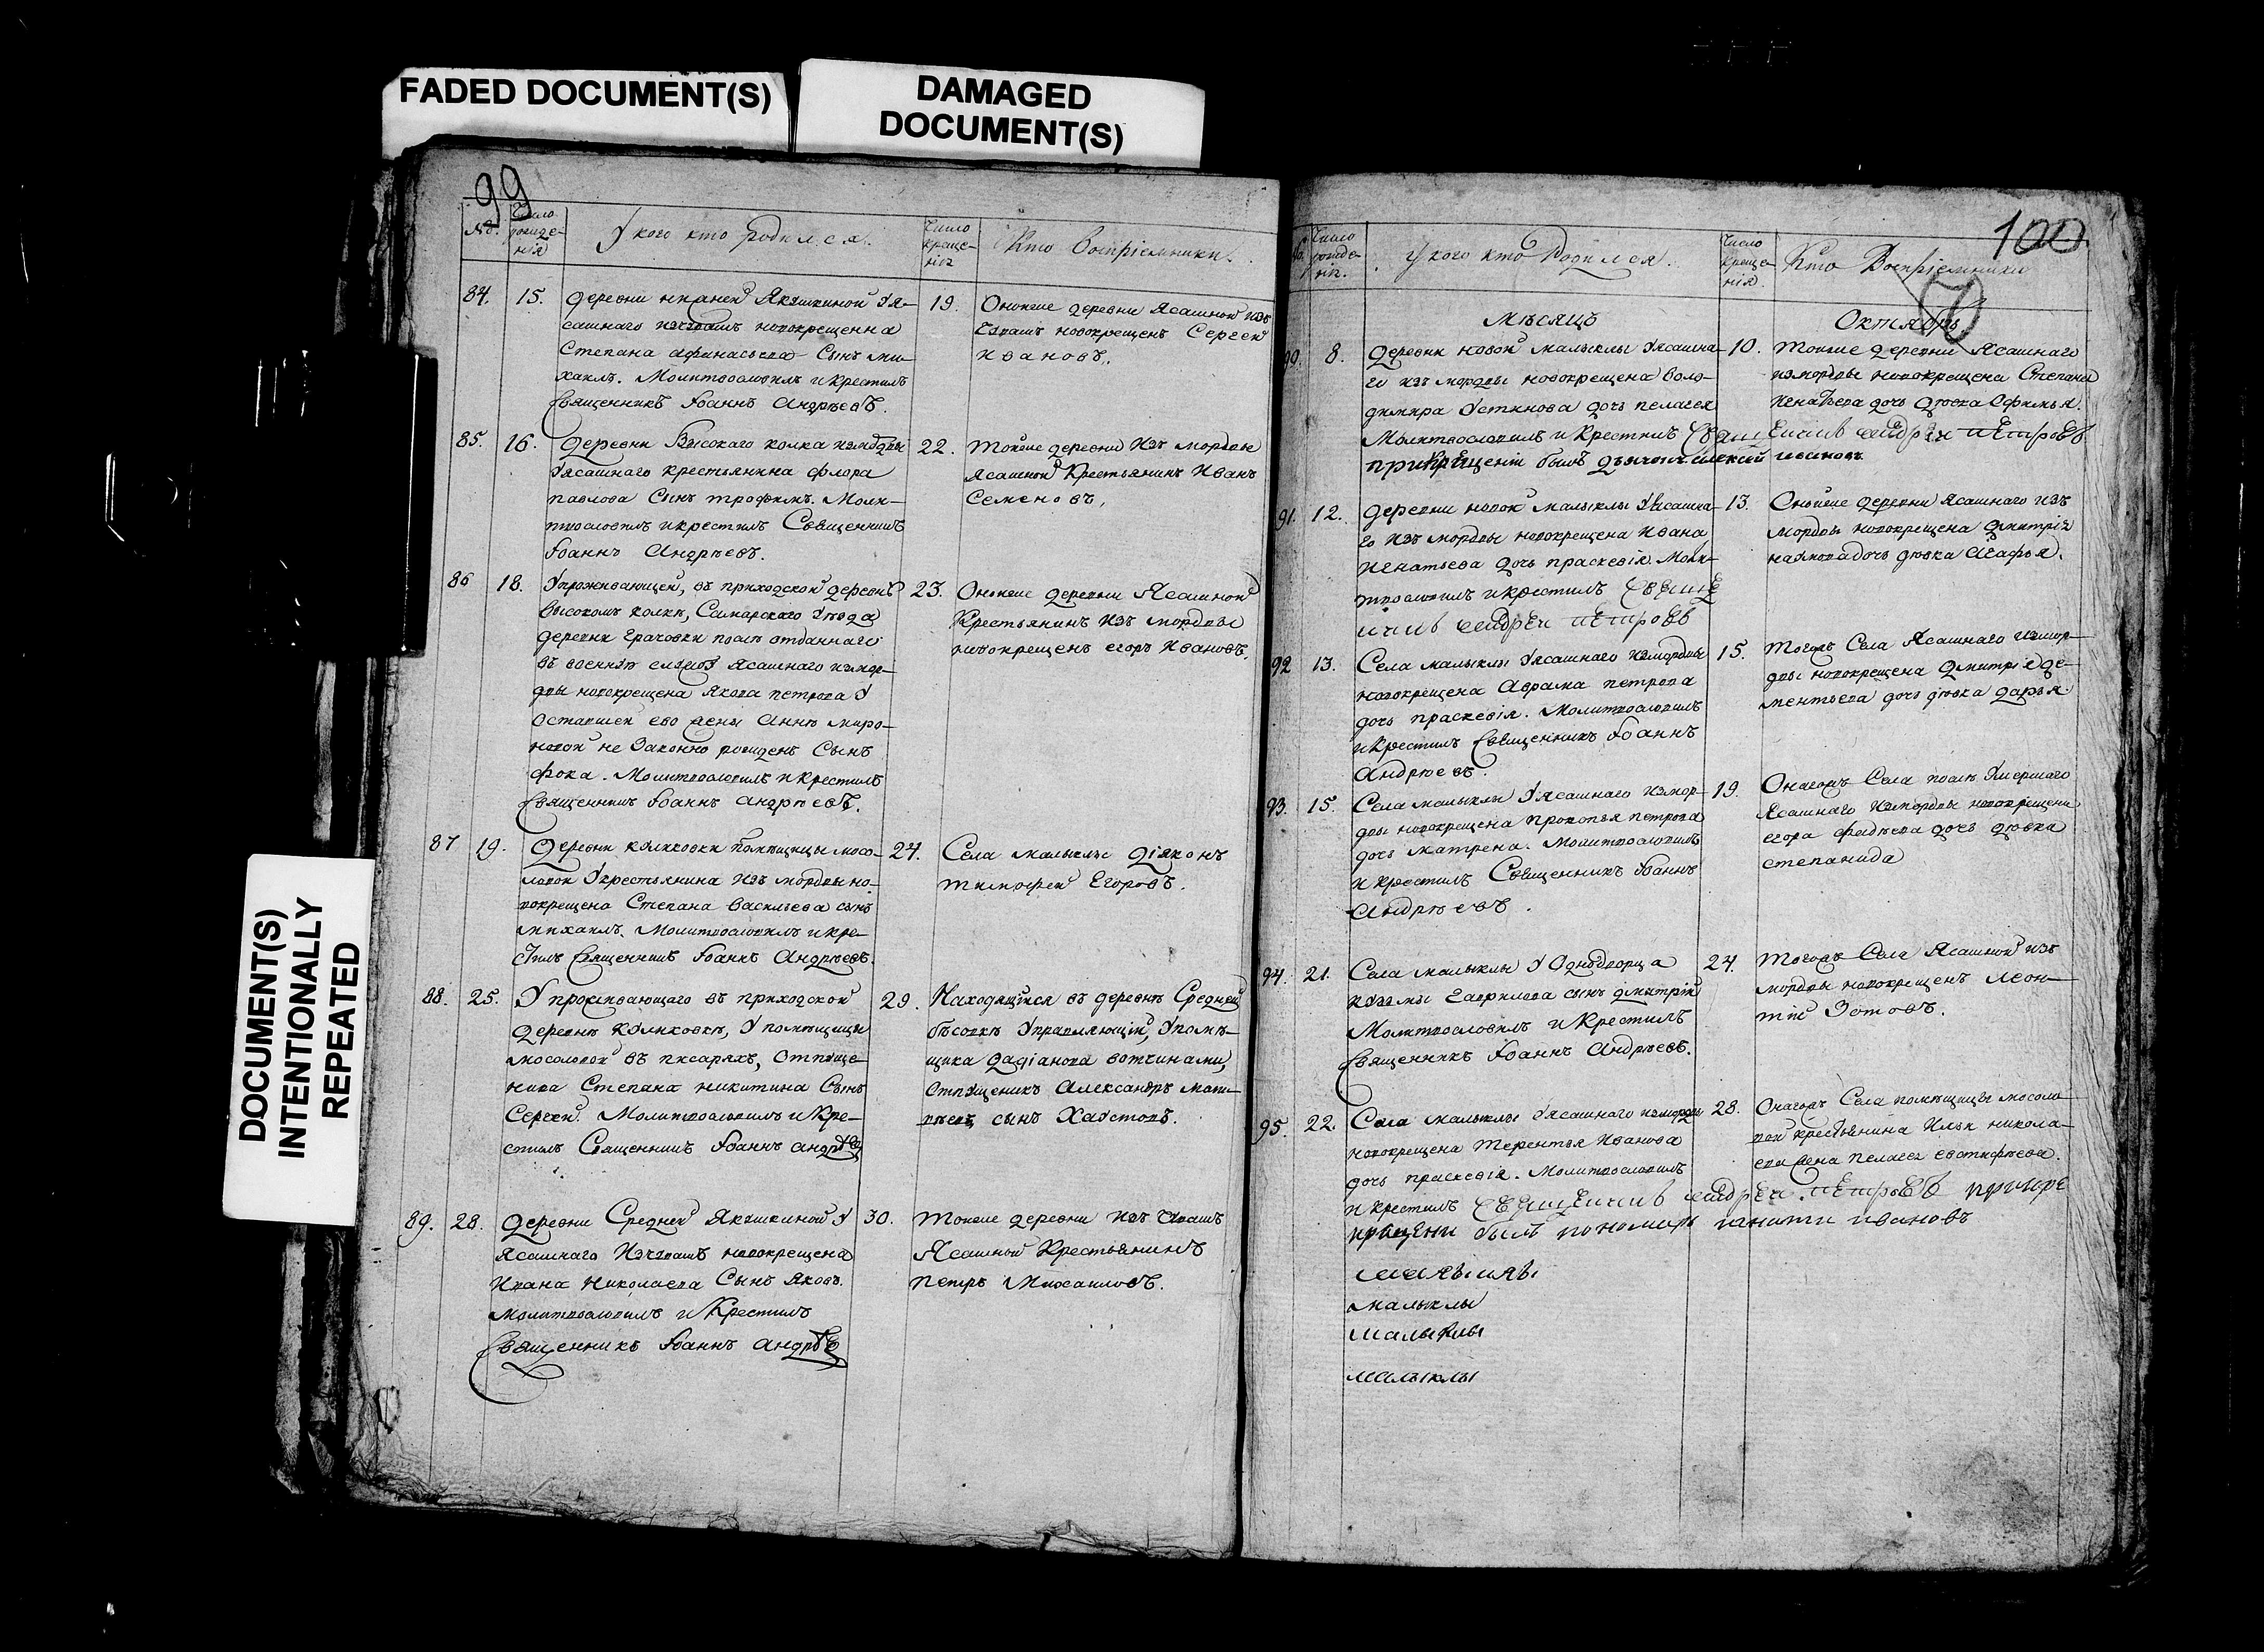 FADED DOCUMENT(S)
DAMAGED
DOCUMENT(S)
DOCUMENT(S)
INTENTIONALLY
REPEATED
99
№
Число
рожде-
нія
У кого кто родился.
Число
креще-
нія
Кто воспріемники.
84. 15.
деревни Якушкиной у я-
сашнаго новокрещенна
Степана Афанасьева сынъ Ми-
хаилъ. Молитвословилъ и крестилъ
Священникъ Іоаннъ Андрѣевъ.
19.
Оноиже деревни Ясашной изъ
Чувашъ новокрещенъ Сергей
Ивановъ.
85. 16.
деревни Высокаго колка измордвы
Уясашнаго крестьянина Флора
Павлова сынъ Трофимъ. Моли-
твословилъ и крестилъ Священникъ
Іоаннъ Андрѣевъ.
22.
Тойже деревни изъ мордвы
Ясашной крестьянинъ Иванъ
Семеновъ,
86 18.
Упроживающей, въ приходской деревнѣ
Высокомъ колкѣ, Самарскаго уезда
деревни Грачовки послѣ отданнаго
въ военную Ясашнаго измор-
двы новокрещена Якова Петрова у
оставшей ево жены Анны Миро-
новой не законно рожденъ сынъ
Фока. Молитвословилъ и крестилъ
Священникъ Іоаннъ Андрѣевъ.
23.
Оноиже деревни Ясашной
Крестьянинъ изъ мордвы
новокрещенъ Егоръ Ивановъ.
87 19.
деревни помѣщицы Мосо-
ловой Укрестьянина изъ мордвы но-
вокрещена Степана Васильева сынъ
Михаилъ. Молитвословилъ и кре-
стилъ Священникъ Іоаннъ Андрѣевъ.
24.
Села Малыклы діяконъ
Тимофей Егоровъ.
88. 25.
У проживающаго въ приходской
деревнѣ, у помѣщицы
Мосоловой въ писаряхъ, отпуще-
ника Степана Никитина сынъ
Сергей. Молитвословилъ и кре-
стилъ Священникъ Іоаннъ Андрѣевъ
29.
Находящійся въ деревнѣ Средней
управляющій, у помѣ-
щика Дадіанова вотчинами,
отпущеникъ Александръ Мат-
вѣевъ сынъ Хаустовъ.
89. 28.
деревни Средней Якушкиной у
Ясашнаго изчувашъ новокрещена
Ивана Николаева сынъ Яковъ.
Молитвословилъ и крестилъ
Священникъ Іоаннъ Андрѣевъ
30.
Тойже деревни изъ Чувашъ
Ясашной крестьянинъ
Петръ Михаиловъ.
100
Число
рожде-
нія.
У кого кто родился.
Число
креще-
нія
Кто воспріемники
Мѣсяцъ Октябрь
90. 8.
деревни новой Малыклы Уясашна-
го изъ мордвы новокрещена Воло-
димира Устинова дочь Пелагея
Молитвословилъ и крестилъ Священникъ Андрей Петровъ
прикрещеніи былъ дьячокъ Алексей Ивановъ
10.
Тойже деревни Ясашнаго
измордвы новокрещена Степана
Игнатьева дочь дѣвка Офимья.
91. 12.
деревни новой Малыклы Уясашна-
го изъ мордвы новокрещена Ивана
Игнатьева дочь Праскевія. Моли-
твословилъ и крестилъ Свяще
никъ Андрей Петровъ
13.
Оноиже деревни Ясашнаго изъ
мордвы новокрещена Дмитрія
дочь дѣвка Агафья.
92 13.
Села Малыклы Уясашнаго измордвы
новокрещена Аврама Петрова
дочь Праскевія. Молитвословилъ
и крестилъ Священникъ Іоаннъ
Андрѣевъ.
15.
Тогожъ Села Ясашнаго измор-
двы новокрещена Дмитрія Де-
ментьева дочь дѣвка Дарья.
93. 15.
Села Малыклы Уясашнаго измор-
двы новокрещена Прокопья Петрова
дочь Матрена. Молитвословилъ
и крестилъ Священникъ Іоаннъ
Андрѣевъ.
19.
Онагожъ Села послѣ Умершаго
Ясашнаго измордвы новокрещена
Егора Фадѣева дочь дѣвка
Степанида
94. 21.
Села Малыклы у Однодворца
Козмы Гаврилова сынъ Дмитрій
Молитвословилъ и крестилъ
Священникъ Іоаннъ Андрѣевъ.
24.
Тогожъ Села Ясашной изъ
мордвы новокрещенъ Леон-
тій Зотовъ.
95. 22.
Села Малыклы Уясашнаго измордвы
новокрещена Терентья Иванова
дочь Праскевія. Молитвословилъ
и крестилъ Священникъ Андрей Петровъ прикре
щени былъ пономарь Ивановъ
28.
Онагожъ Села помѣщицы Мосоло-
вой крестьянина Ильи Никола-
ева жена Пелагея Евстифѣева.
малыклы
малыклы
малыклы
малыклы